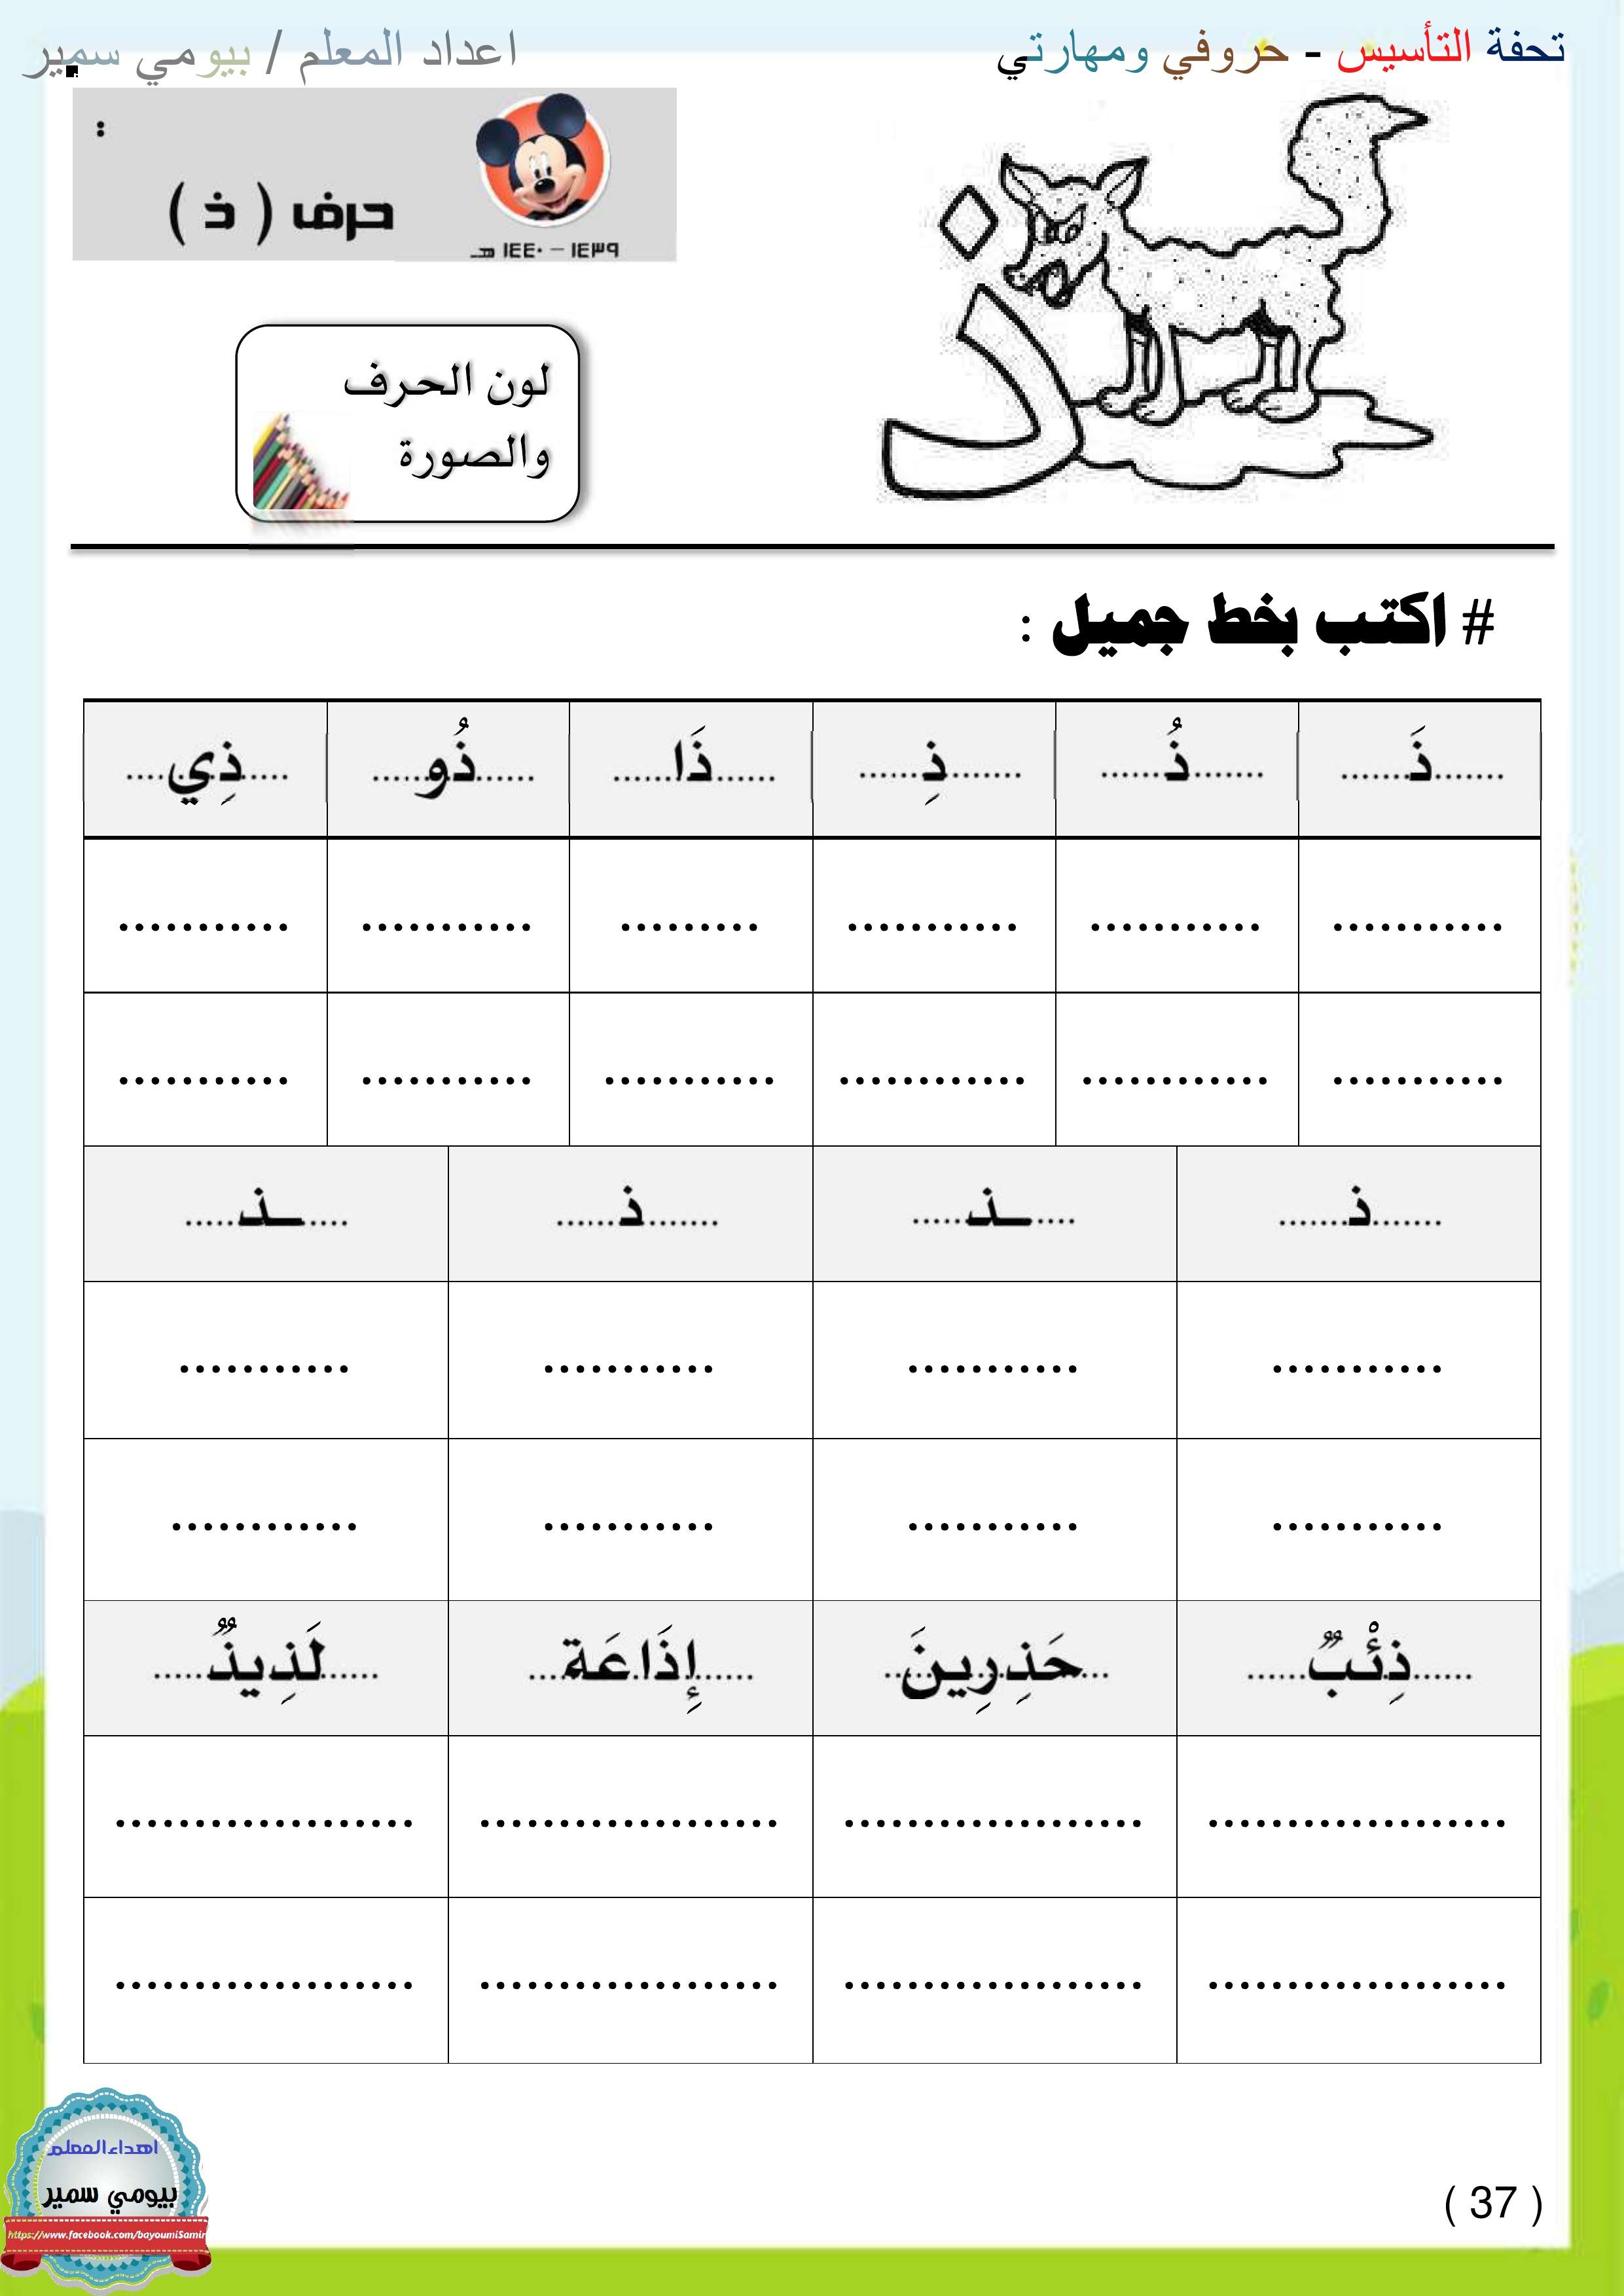 تحفة التأسيس - حروفي ومهارتي
اعداد المعلم / بيومي سمير
:
حرف ( ذ )
١٤٣٩ – ١٤٤٠ هـ
ذ
لون الحرف
والصورة
# اكتب بخط جميل :
.......ذَ....... .......ذُ...... .......ذِ...... ......ذَا...... ......ذُو..... .....ذِي....
........... ........... ........... ......... ........... ...........
........... ............ ............ ........... ........... ...........
.......ذ....... ....ـذ..... .......ذ...... ....ـذ.....
........... ........... ........... ...........
........... ........... ........... ............
......ذِئْبٌ...... ...حَذِرِينَ.. ......إِذَاعَة... ......لَذِيذٌ.....
................... ................... ................... ...................
................... ................... ................... ...................
اهداء المعلم
بيومي سمير
https://www.facebook.com/bayoumiSamir
( 37 )